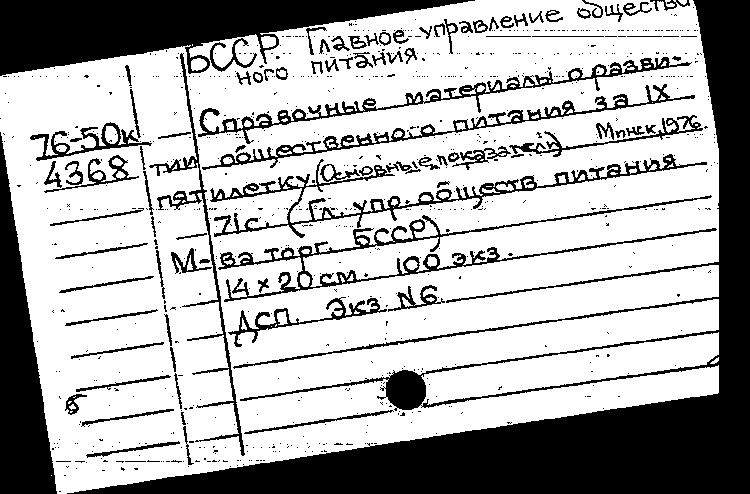 БССР. Главное управление обществен
ного питания.
76-50к
4368
Справочные материалы о разви-
тии общественного питания за IX
пятилетку (Основные показатели). Минск, 1976.
71с. (Гл. упр. обществ питания
М-ва торг. БССР).
14 × 20 см. 100 экз.
ДСП. Экз. N6.